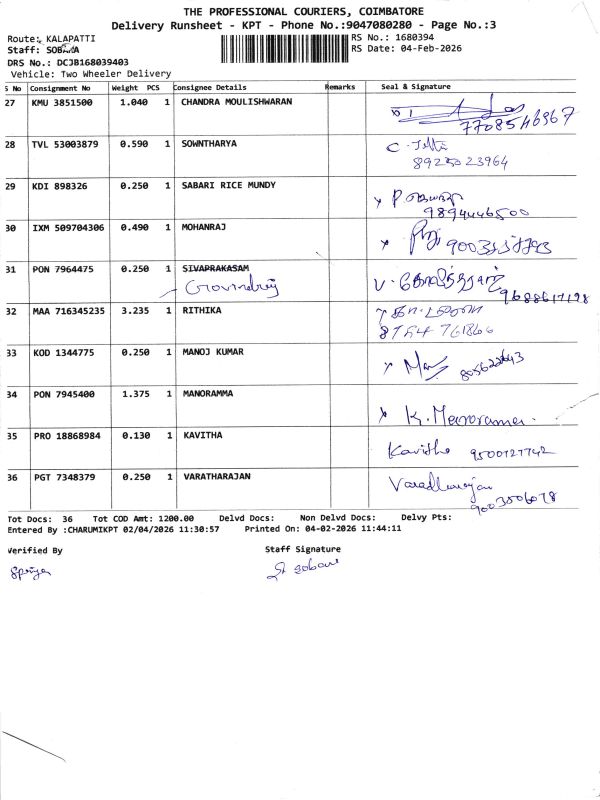 THE PROFESSIONAL COURIERS, COIMBATORE
Delivery Runsheet - KPT - Phone No.:9047080280 - Page No.:3
Route: KALAPATTI
RS No.: 1680394
Staff: SOBANA
RS Date: 04-Feb-2026
DRS No.: DCJB168039403
Vehicle: Two Wheeler Delivery
S No Consignment No Weight PCS Consignee Details Remarks Seal & Signature
27 KMU 3851500 1.040 1 CHANDRA MOULISHWARAN
7708546967
28 TVL 53003879 0.590 1 SOWNTHARYA
8925023964
29 KDI 898326 0.250 1 SABARI RICE MUNDY
9894446500
30 IXM 509704306 0.490 1 MOHANRAJ
31 PON 7964475 0.250 1 SIVAPRAKASAM
Govindraj
9688617198
32 MAA 716345235 3.235 1 RITHIKA
33 KOD 1344775 0.250 1 MANOJ KUMAR
34 PON 7945400 1.375 1 MANORAMMA
K. Manorama
35 PRO 18868984 0.130 1 KAVITHA
Kavitha 9500727742
36 PGT 7348379 0.250 1 VARATHARAJAN
Varadharajan
9003506078
Tot Docs: 36 Tot COD Amt: 1200.00 Delvd Docs: Non Delvd Docs: Delvy Pts:
Entered By :CHARUMIKPT 02/04/2026 11:30:57 Printed On: 04-02-2026 11:44:11
Verified By Staff Signature